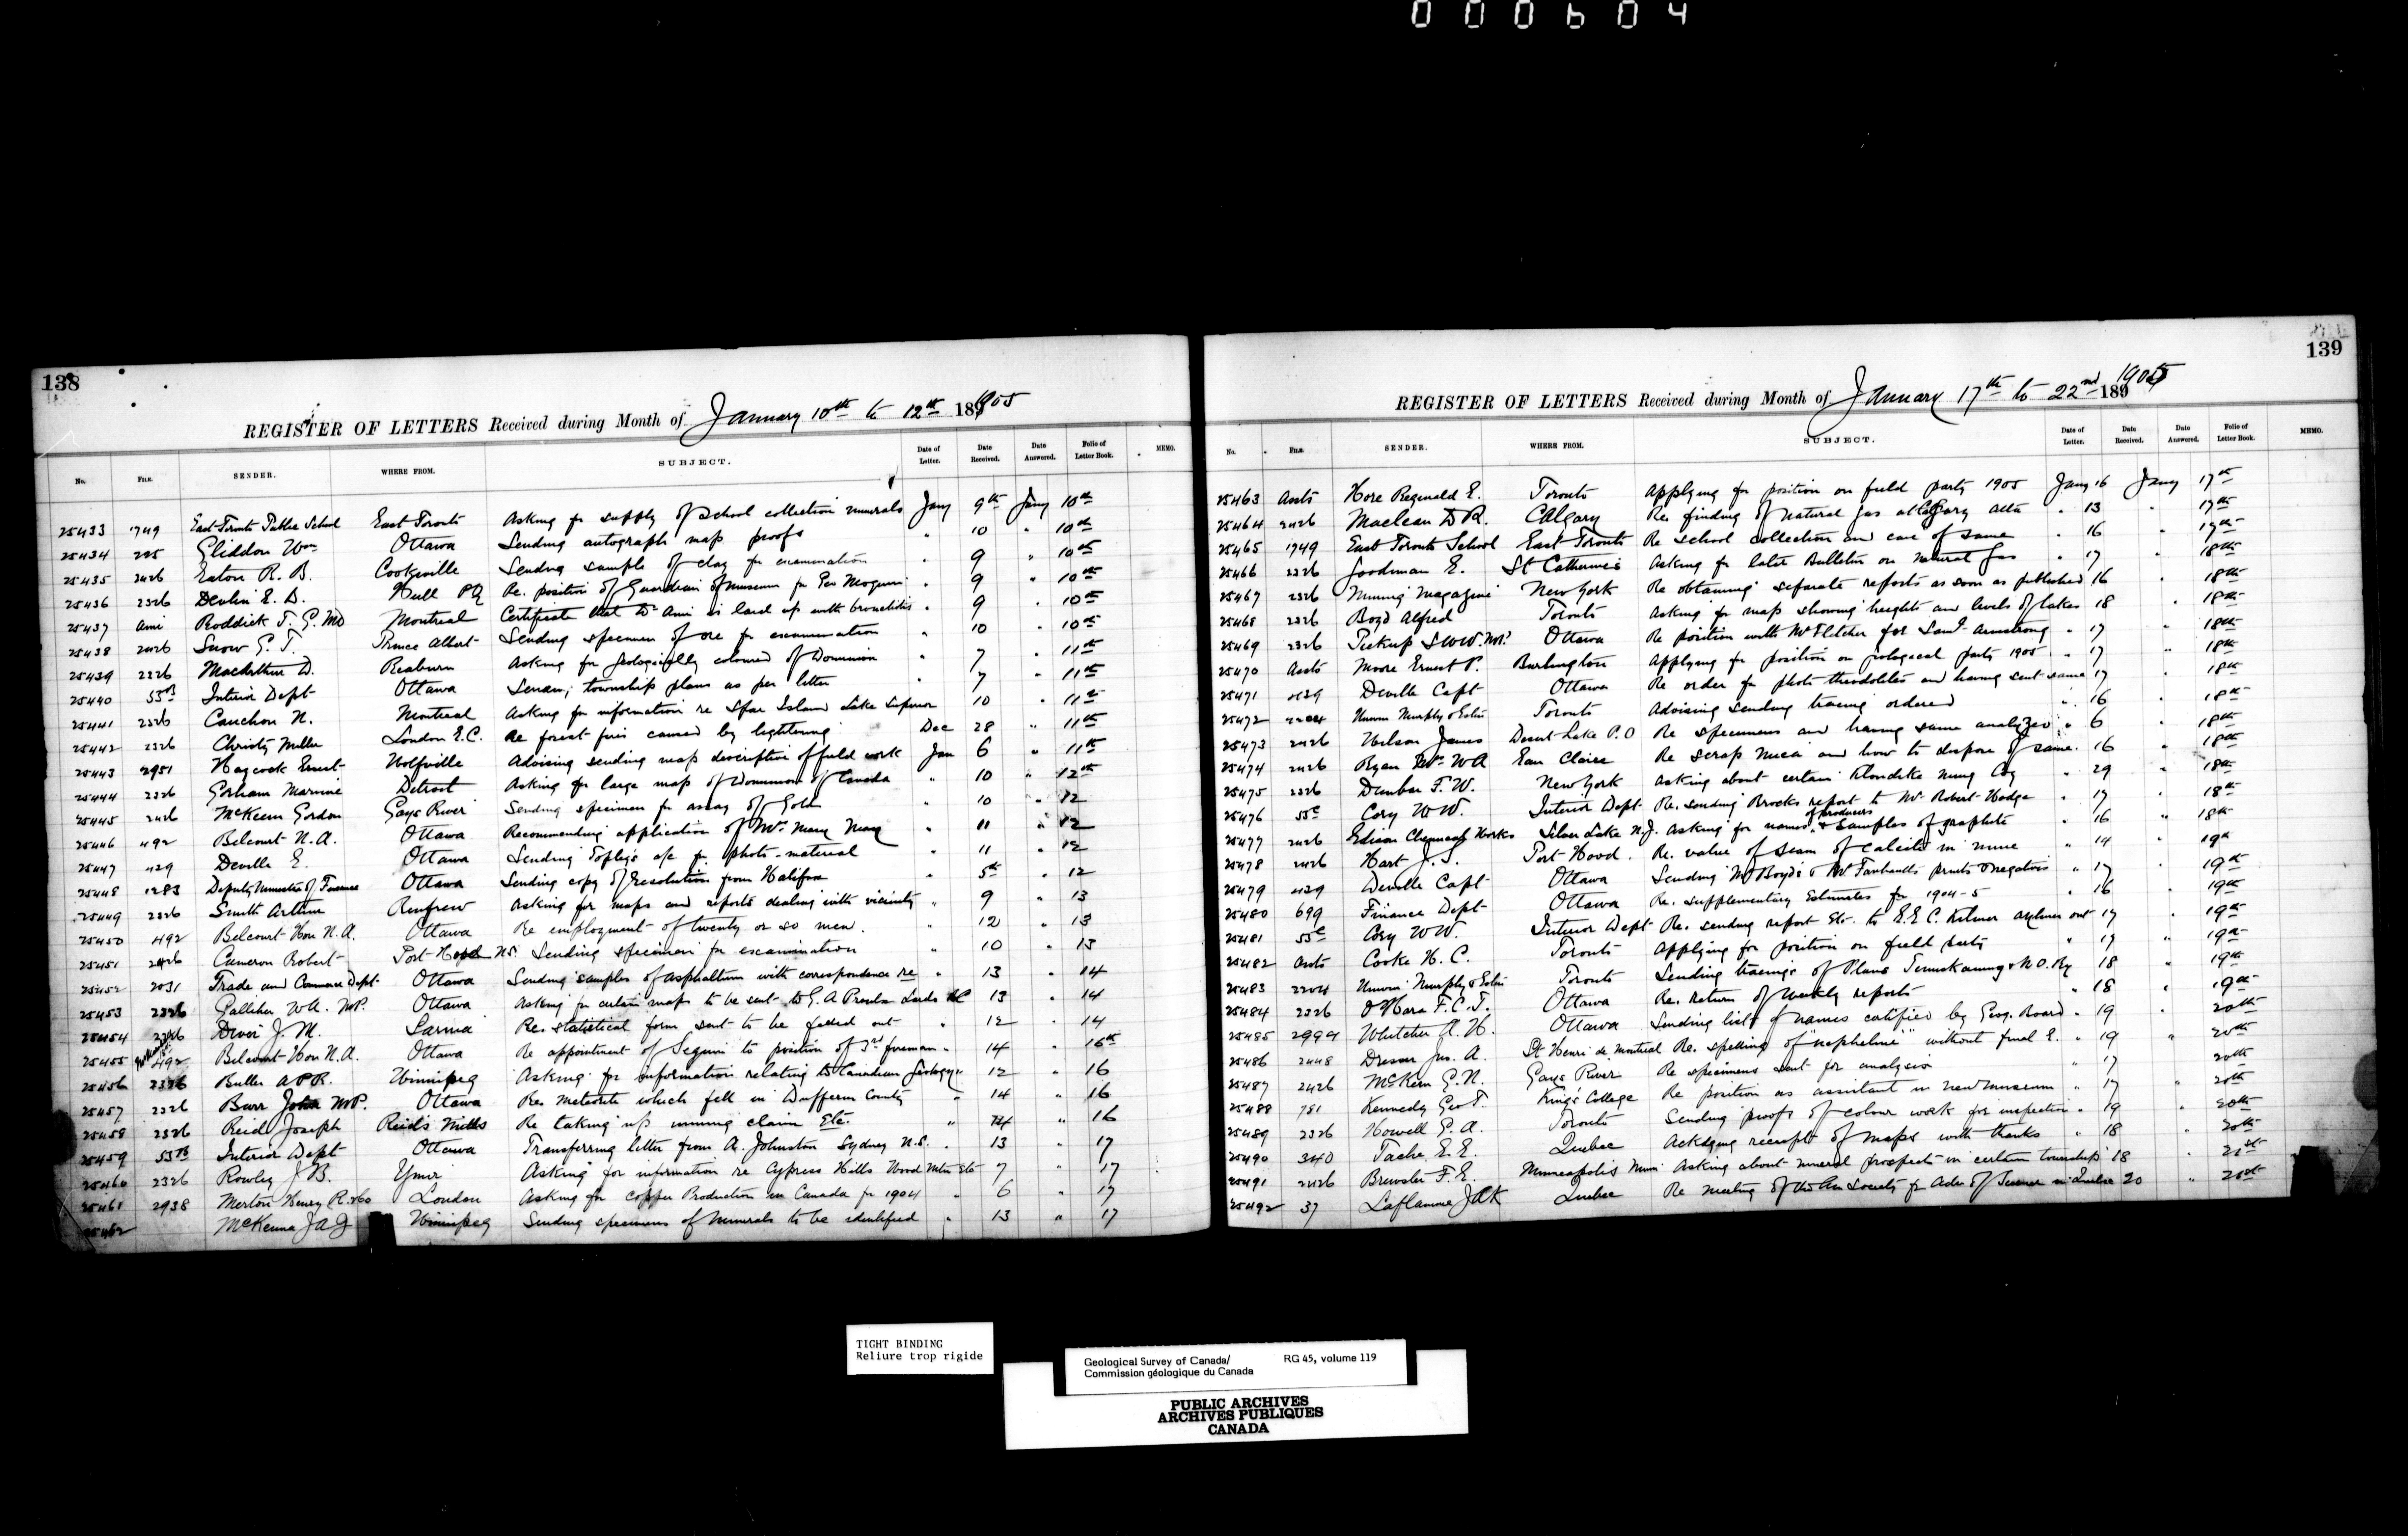 000604
138
REGISTER OF LETTERS Received during Month of January 10th to 12th 1905
No. FILE. SENDER. WHERE FROM. SUBJECT. Date of Letter. Date Received. Date Answered. Folio of Letter Book. MEMO.
25433 1749 East Toronto Public School East Toronto Asking for supply of School collection minerals Jany 9th Jany 10th
25434 225 Gliddon Wm Ottawa Sending autograph map proofs " 10 " 10th
25435 2426 Eaton R. B. Cooksville Sending sample of clay for examination " 9 " 10th
25436 2326 Devlin E. B. Hull PQ Re. position of Guardian of museum for Geo " 9 " 10th
25437 Ami Roddick T. G. MD Montreal Certificate that Dr Ami is laid up with bronchitis " 9 " 10th
25438 2426 Snow G. T. Prince Albert Sending specimen of ore for examination " 10 " 10th
25439 2326 MacArthur D. Reaburn Asking for geologically coloured of Dominion " 7 " 11th
25440 55B Interior Dept Ottawa Sending township plans as per letter " 7 " 11th
25441 2326 Cauchon N. Montreal Asking for information re Spar Island Lake Superior 10 " 11th
25442 2326 Christy Miller London E.C. Re forest fires caused by lightening Dec 28 " 11th
25443 2951 Haycock Ernest Wolfville Advising sending map descriptive of field work Jan 6 " 11th
25444 2326 Gorham Marvine Detroit Asking for large map of Dominion of Canada " 10 " 12th
25445 2426 McKeen Gordon Gays River Sending specimen for assay of Gold " 10 " 12
25446 492 Belcourt N. A. Ottawa Recommending application of Mr. Marc " 11 " 12
25447 429 Deville E. Ottawa Sending Topley's a/c for photo-material " 11 " 12
25448 1283 Deputy Minister of Finance Ottawa Sending copy of resolution from Halifax " 5th " 12
25449 2326 Smith Arthur Renfrew Asking for maps and reports dealing with vicinity " 9 " 13
25450 492 Belcourt Hon N. A. Ottawa Re employment of twenty or so men. " 12 " 13
25451 2426 Cameron Robert Port Hood N.S. Sending specimen for examination " 10 " 13
25452 2031 Trade and Commerce Dept Ottawa Sending samples of asphaltum with correspondence re " 13 " 14
25453 2326 Galliher W. A. MP. Ottawa Asking for certain maps to be sent to G. A. BC 13 " 14
25454 2326 J. M. Sarnia Re. statistical form sent to be filled out " 12 " 14
25455 492 Belcourt Hon N. A. Ottawa Re appointment of Seguin to position of 3rd fireman " 14 " 16th
25456 2326 Butler A P R. Winnipeg Asking for information relating to Canadian Geology " 12 " 16
25457 2326 Barr John MP. Ottawa Re. Meteorite which fell in Dufferin County " 14 " 16
25458 2326 Reid Joseph Reids Mills Re taking up mining claim Etc. " 14 " 16
25459 55B Interior Dept Ottawa Transferring letter from A. Johnston Sydney N.S. " 13 " 17
25460 2326 Rowley J. B. Ymir Asking for information re Cypress Hills Wood Mtn Etc 7 " 17
25461 2938 Merton Henry R. & Co London Asking for copper Production in Canada for 1904 " 6 " 17
25462 McKenna J A J Winnipeg Sending specimens of minerals to be identified " 13 " 17
139
REGISTER OF LETTERS Received during Month of January 17th to 22nd 1905
No. FILE. SENDER. WHERE FROM. SUBJECT. Date of Letter. Date Received. Date Answered. Folio of Letter Book. MEMO.
25463 Assts Hore Reginald E. Toronto Applying for position on field party 1905 Jany 16 Jany 17th
25464 2426 Maclean D R. Calgary Re. finding of natural gas at Calgary Alta " 13 " 17th
25465 1749 East Toronto School East Toronto Re school collection and case of same " 16 " 17th
25466 2326 Goodman E. St Catherines Asking for later Bulletin on natural gas " 17 " 18th
25467 2326 Mining Magazine New York Re obtaining separate reports as soon as published 16 " 18th
25468 2326 Boyd Alfred Toronto Asking for map showing heights and levels of lakes 18 " 18th
25469 2326 Pickup S.W.W. MP. Ottawa Re position with Mr Fletcher for Saml Armstrong " 17 " 18th
25470 Assts Moore Ernest P. Burlington Applying for position on geological party 1905 " 17 " 18th
25471 429 Deville Capt Ottawa Re order for photo theodolites and having sent same 17 " 18th
25472 2204 Unwin Murphy & Esten Toronto Advising sending tracing ordered " 16 " 18th
25473 2426 Wilson James Desert Lake P.O Re specimens and having same analyzed " 6 " 18th
25474 2426 Ryan Mr. W A Eau Claire Re scrap mica and how to dispose of same. 16 " 18th
25475 2326 Dunbar F. W. New York Asking about certain Klondike ming Coy " 29 " 18th
25476 55C Cory W W. Interior Dept Re. sending Brocks report to Mr. Robert Hedge " 17 " 18th
25477 2426 Edison Chemical Works Silver Lake N.J. Asking for names of producers & samples of graphite " 16 " 18th
25478 2426 Hart J. S. Port Hood. Re. value of seam of calcite in mine " 14 19th
25479 429 Deville Capt Ottawa Sending Mr Boyd's & Mr Faribault's prints & negatives " 17 " 19th
25480 699 Finance Dept Ottawa Re. Supplementary Estimates for 1904-5 " 16 " 19th
25481 55C Cory W W. Interior Dept Re. sending report Etc. to E.E C. Kilmer Aylmer Ont 17 " 19th
25482 Assts Cooke H. C. Toronto Applying for position on field party " 17 " 19th
25483 2204 Unwin Murphy & Esten Toronto Sending tracings of Plans Temiskaming & N.O. Ry 18 " 19th
25484 2326 O'Hara F. C. T. Ottawa Re. Return of weekly reports " 18 " 19th
25485 2999 Whitcher A. H. Ottawa Sending list of names certified by Geog. Board " 19 " 20th
25486 2448 Dresser Jno. A. St Henri de Montreal Re. spelling of "nepheline" without final E. " 19 " 20th
25487 2426 McKeen G. N. Gays River Re specimens sent for analysis " 17 " 20th
25488 781 Kennedy Geo T. King's College Re position as assistant in new museum " 17 " 20th
25489 2326 Howell G. A. Toronto Sending proofs of colour work for inspection " 19 " 20th
25490 340 Tache E. E. Quebec Ackdging receipt of maps with thanks " 18 " 20th
25491 2426 Brewster F. E. Minneapolis Minn Asking about mineral prospects in certain township 18 " 21st
25492 37 Laflamme J C K Quebec Re meeting of the Am Society for Adv of Science in Quebec 20 " 21st
TIGHT BINDING
Reliure trop rigide
Geological Survey of Canada/ RG 45, volume 119
Commission géologique du Canada
PUBLIC ARCHIVES
ARCHIVES PUBLIQUES
CANADA